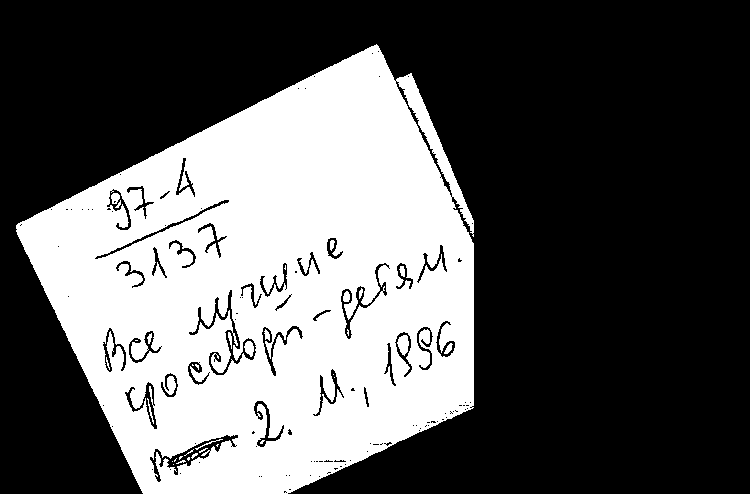 97-4
3137
Все лучшие
кроссворды - детям.
2. М., 1996